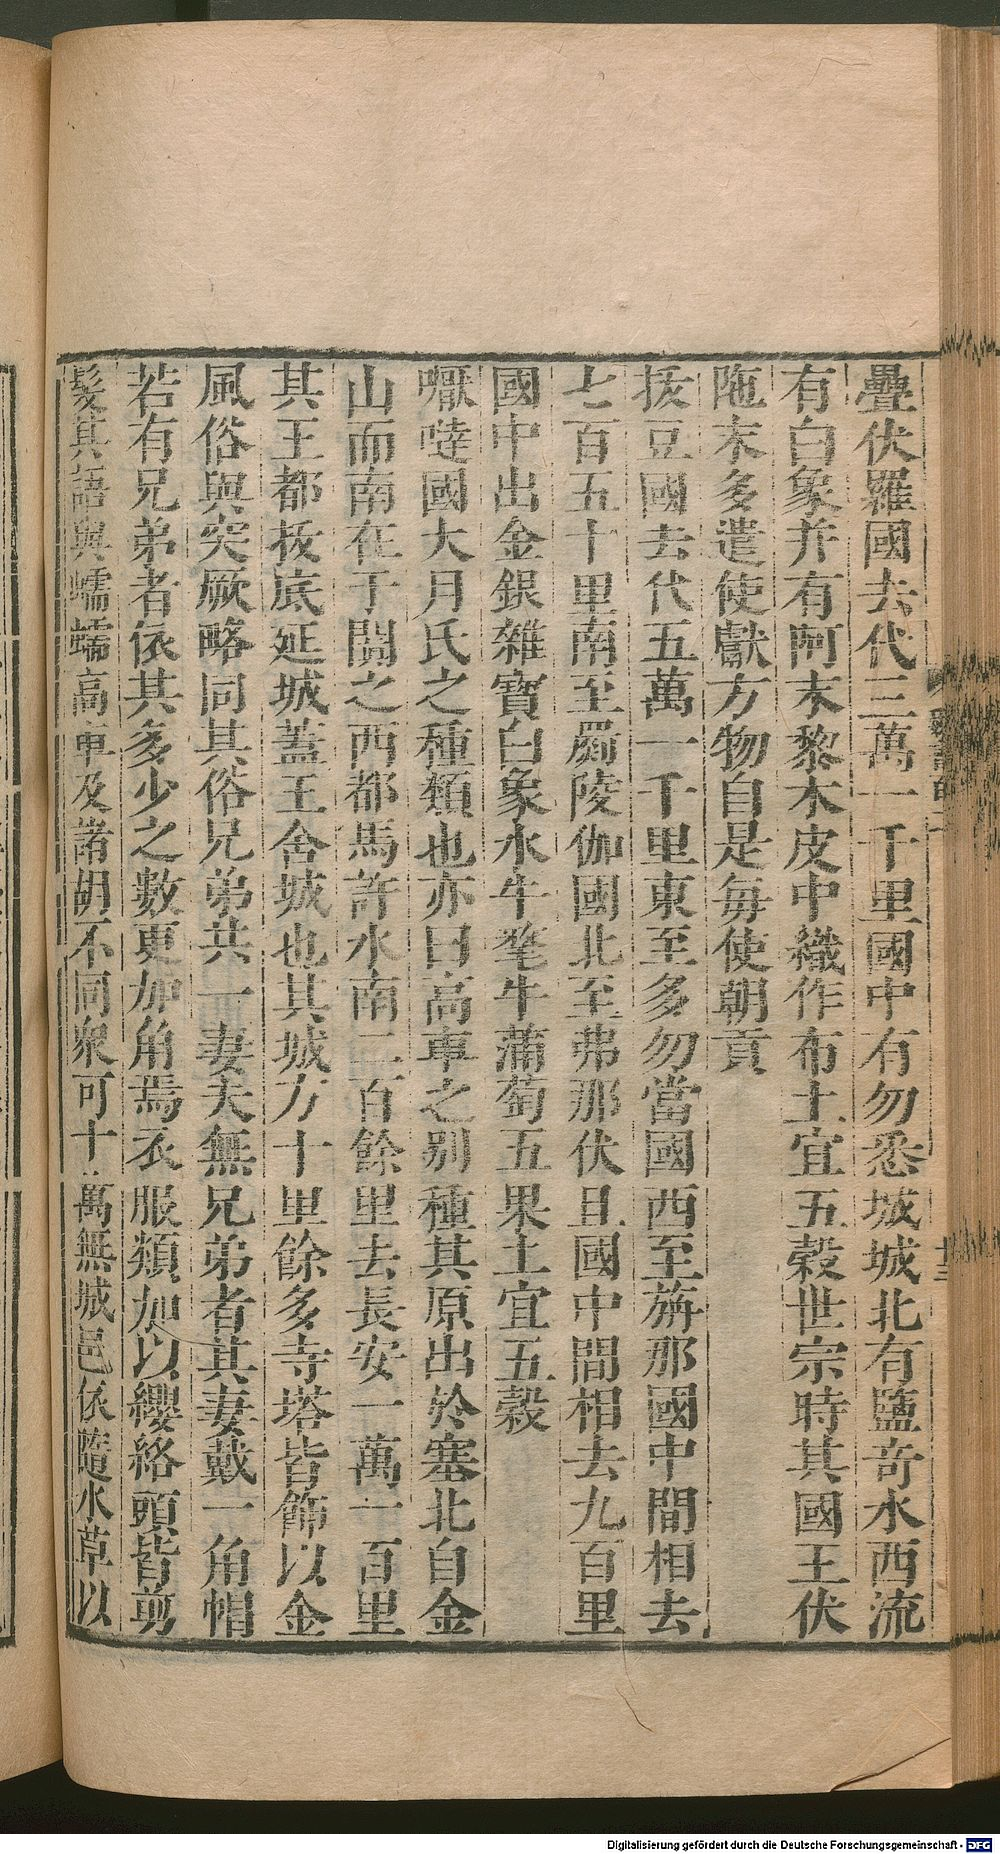 疊伏羅國去代三萬一千里國中有勿悉城城北有鹽奇水西流
有白象并有阿末黎木皮中織作布土宜五穀世宗時其國王伏
陁末多遣使獻方物自是每使朝貢
拔豆國去代五萬一千里東至多勿當國西至旃那國中間相去
七百五十里南至罽陵伽國北至弗那伏且國中間相去九百里
國中出金銀雜寶白象水牛氂牛蒲萄五果土宜五穀
嚈噠國大月氏之種類也亦曰高車之别種其原出於塞北自金
山而南在于闐之西都馬許水南二百餘里去長安一萬一百里
其王都拔底延城蓋王舍城也其城方十里餘多寺塔皆飾以金
風俗與突厥略同其俗兄弟共一妻夫無兄弟者其妻戴一角帽
若有兄弟者依其多少之數更加角焉衣服類加以纓絡頭皆剪
髮其語與蠕蠕高車及諸胡不同衆可十萬無城邑依隨水草以
廿三
Digitalisierung gefördert durch die Deutsche Forschungsgemeinschaft - DFG